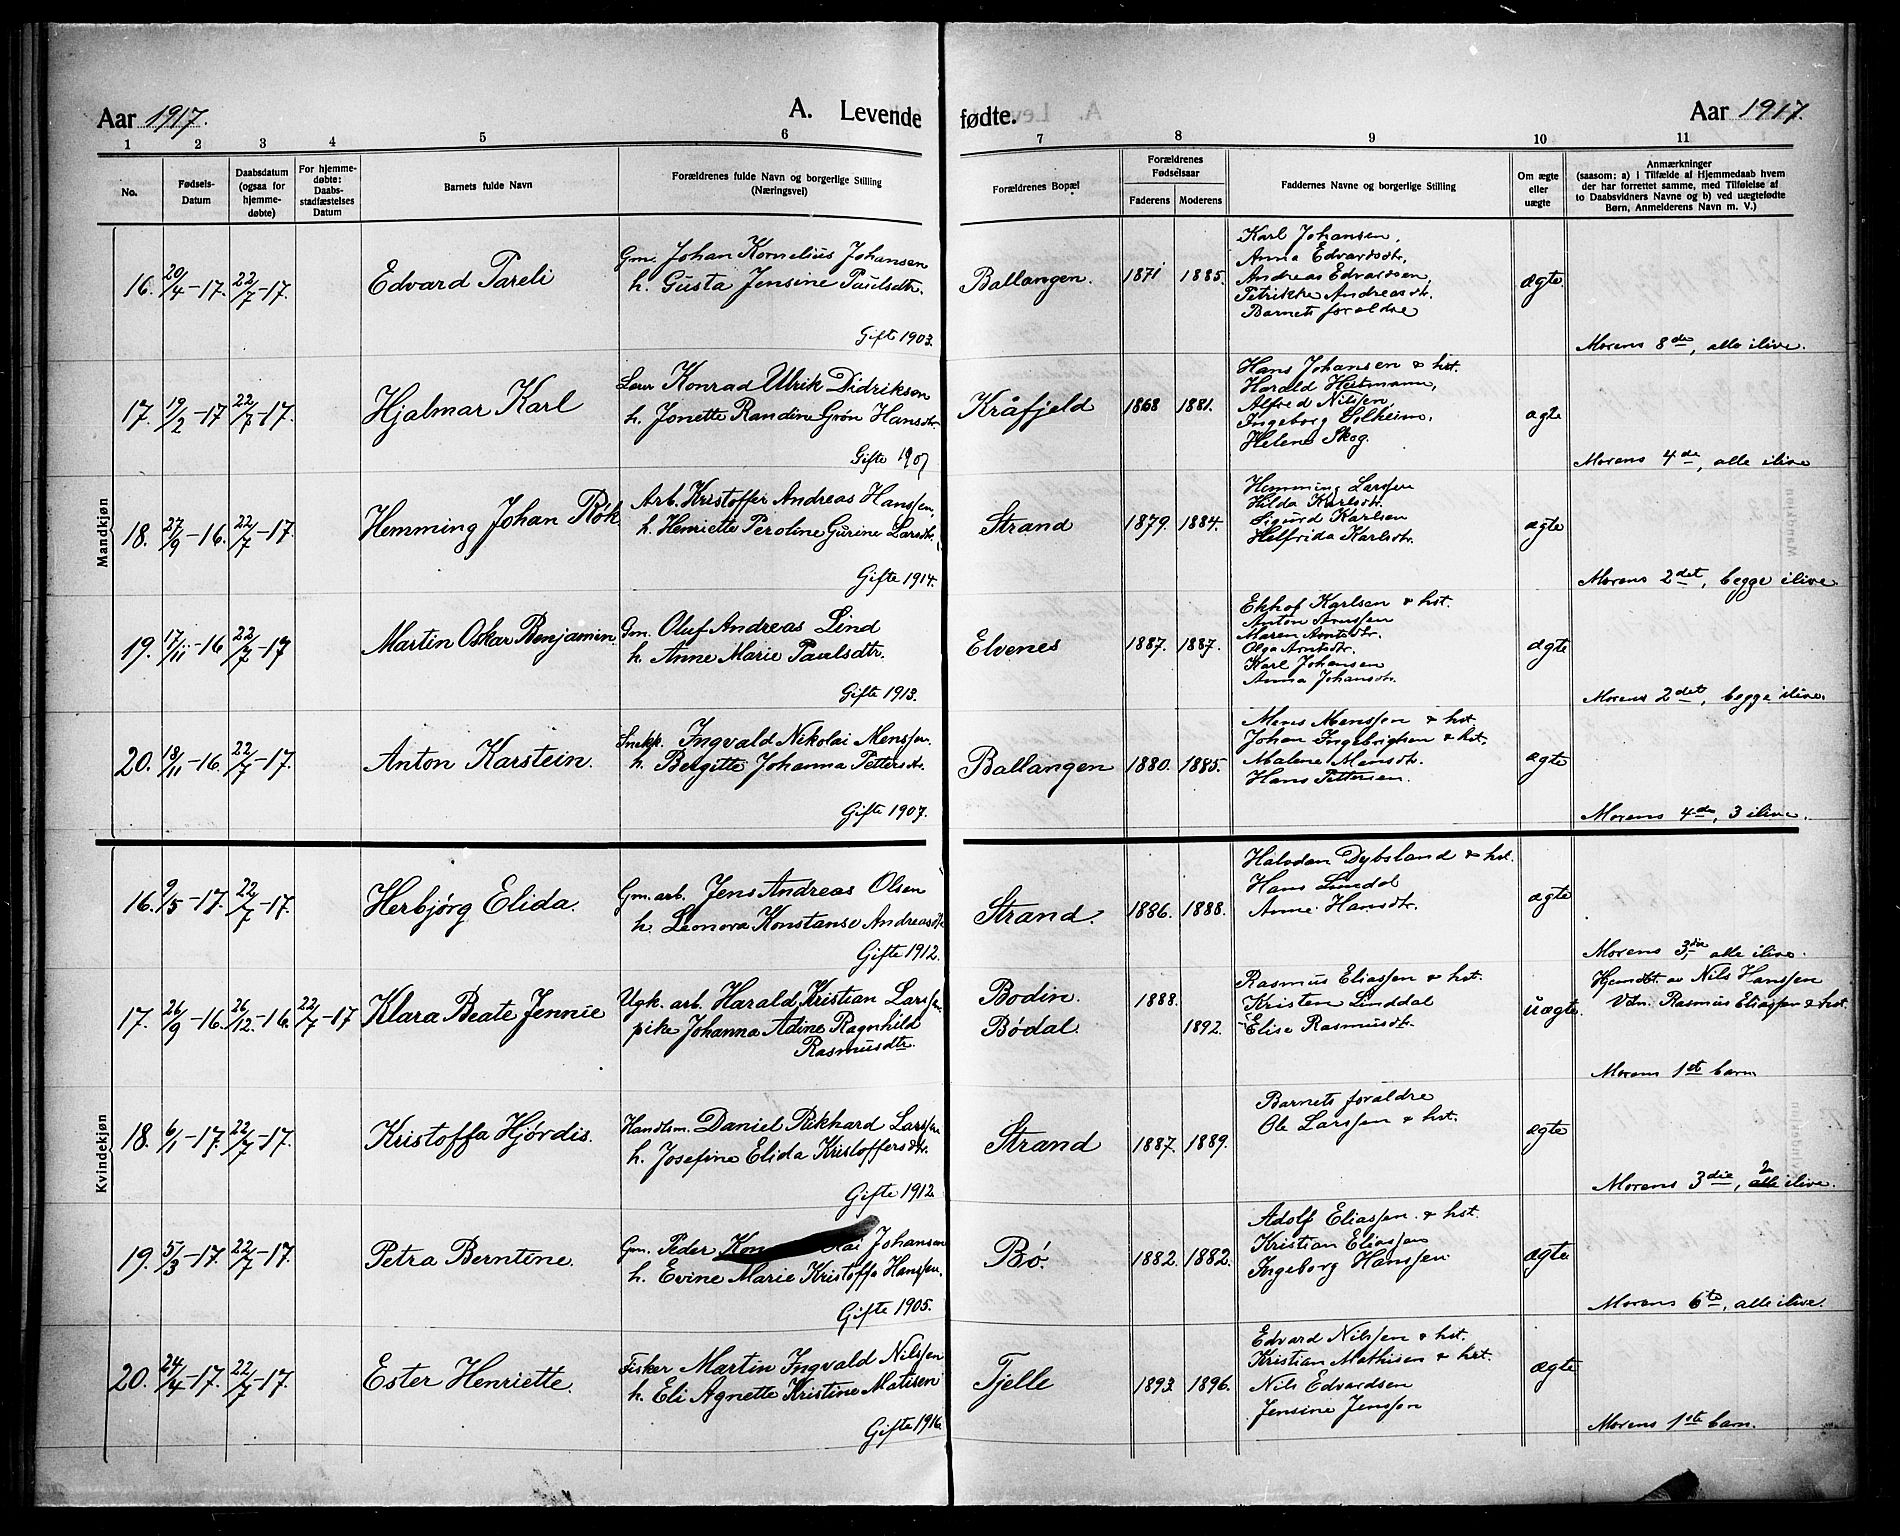 Aar 1917.
A. Levende fødte.
Aar 1917.
1 2 3 4 5 6 7 8 9 10 11
No.
Fødsels-
Datum
Daabsdatum
(ogsaa for
hjemme-
døbte)
For hjemme-
døbte:
Daabs-
stadfæstelses
Datum
Barnets fulde Navn
Forældrenes fulde Navn og borgerlige Stilling
(Næringsvei)
Forældrenes Bopæl
Forældrenes
Fødselsaar
Faderens Moderens
Faddernes Navne og borgerlige Stilling
Om ægte
eller
uægte
Anmærkninger
(saasom: a) i Tilfælde af Hjemmedaab hvem
der har forrettet samme, med Tilføielse af
to Daabsvidners Navne og b) ved uægtefødte
Børn, Anmelderens Navn m. V.)
Mandkjøn
16. 20/4-17. 22/7-17. Edvard Pareli
Gm. Johan Kornelius Johansen
h. Gusta Jensine Paulsdtr.
Gift 1903.
Ballangen. 1871 1885.
Karl Johansen,
Anna Edvardsdtr.
Andreas Edvardsen,
Petrikke Andreasdtr.
Barnets forældre
ægte.
Morens 8de, alle ilive.
17. 19/2-17 22/7-17. Hjalmar Karl
Lærer Konrad Ulrik Didrikson
h. Jonette Randine Grøn Hansdtr.
Gifte 1907
Kråfjeld 1868 1881.
Hans Johansen & hst.
Harald
Alfred Nilsen,
Ingeborg Solheim,
Helene Skog.
ægte
Morens 4de, alle ilive
18. 27/9-16. 22/7-17. Hemming Johan Røk
Arb. Kristoffer Andreas Hanssen,
h. Henriette Peroline Gurine Larsdtr.
Gifte 1914.
Strand 1879. 1884.
Hemming Larssen
Hilda Karlsdtr.
Sigurd Karlsen
Helfrida Karlsdtr.
ægte
Morens 2det, begge ilive.
19. 17/11-16 22/7-17 Martin Oskar Benjamin.
Gm. Oluf Andreas Lind
h. Anne Marie Paulsdtr.
Gifte 1913.
Elvenes 1887. 1887.
Karlsen & hst.
Anton Arnssen
Maren Arntsdtr.
Olga Arntsdtr.
Karl Johansen
Anna Johansdtr.
ægte
Morens 2det, begge ilive.
20. 18/11-16. 22/7-17. Anton Karstein.
Snekk. Ingvald Nikolai Menssen.
h. Bergitte Johanna Pettersdtr.
Gifte 1907.
Ballangen 1880. 1885.
Mons Monssen & hst
Johan Ingebrigtsen & hst,
Malene Monsdtr.
Hans Pettersen.
ægte
Morens 4de, 3 ilive.
Kvindekjøn
16. 9/5-17. 22/7-17. Herbjørg Elida.
Gm. arb. Jens Andreas Olsen
h. Leonora Konstanse Andreasdtr
Gifte 1912.
Strand. 1886. 1888.
Halvdan Dybsland & hst.
Hans Linddal
Anne Hansdtr.
ægte
Morens 3die, alle ilive.
17. 26/9-16. 26/12-16. 22/7-17 Klara Beate Jennie
Ugk. arb. Harald Kristian Larssen
pike Johanna Adine Ragnhild
Rasmusdtr.
Bodin. 1888.
Bødal. 1892.
Rasmus Eliassen & hst.
Kristen Linddal
Elise Rasmusdtr.
uægte.
Hjemdbt. av Nils Hanssen
Vdn. Rasmus Eliassen & hst
Morens 1ste barn
18. 6/1-17. 22/7-17. Kristoffa Hjørdis.
Handlsm. Daniel Rikhard Larssen
h. Josefine Elida Kristoffersdtr.
Gifte 1912
Strand 1887. 1889.
Barnets forældre
Ole Larssen & hst.
ægte
Morens 3die, 2 alle ilive.
19. 5/3-17. 22/7-17. Petra Berntine.
Gm. Peder Johansen
h. Evine Marie Kristoffa Hanssen.
Gifte 1905.
Bø. 1882. 1882.
Adolf Eliassen & hst.
Kristian Eliassen
Ingeborg Hanssen
ægte
Morens 6te, alle ilive.
20. 24/4-17. 22/7-17. Ester Henriette.
Fisker Martin Ingvald Nilssen
h. Eli Agnette Kristine Matisen
Gifte 1916
Tjelle 1893. 1896.
Edvard Nilssen & hst.
Kristian Mathisen & hst.
Nils Edvardsen
Jensine Jenssen
ægte
Morens 1ste barn.